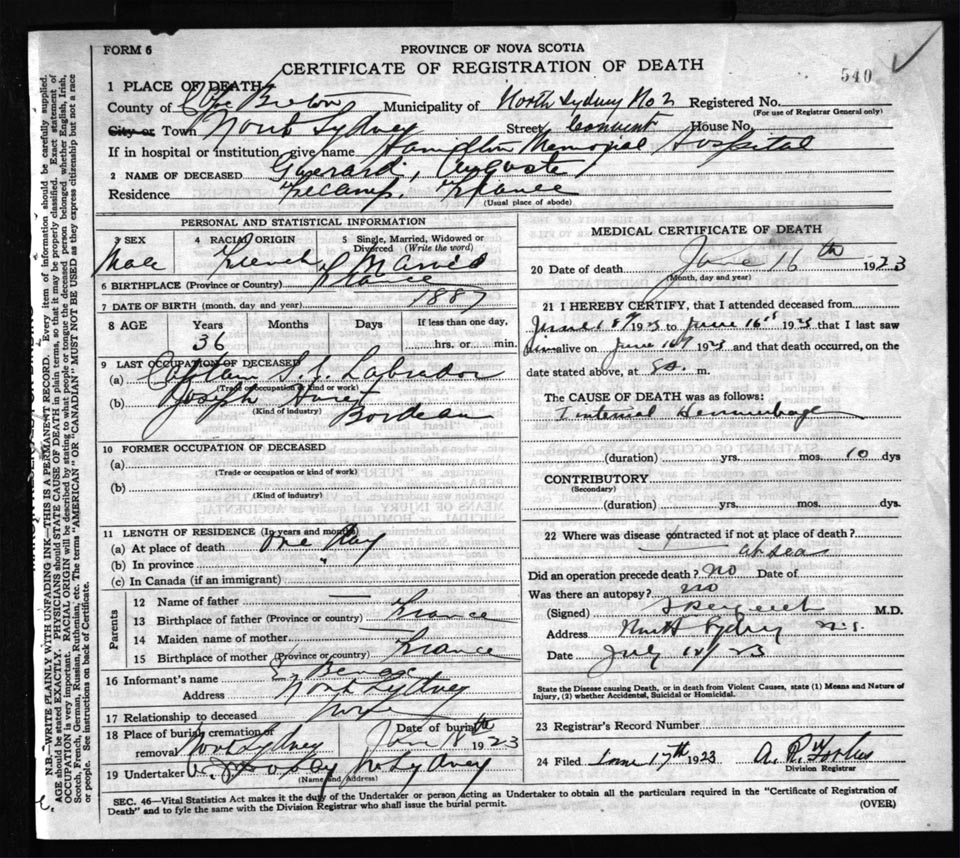 FORM 6
PROVINCE OF NOVA SCOTIA
CERTIFICATE OF REGISTRATION OF DEATH
540
1 PLACE OF DEATH
County of Cape Breton Municipality of North Sydney No 2 Registered No.
(For use of Registrar General only)
City or Town North Sydney Street Convent House No.
If in hospital or institution give name Hamilton Memorial Hospital
2 NAME OF DECEASED Auguste
Residence Fecamp, France
(Usual place of abode)
PERSONAL AND STATISTICAL INFORMATION
3 SEX 4 RACIAL ORIGIN 5 Single, Married, Widowed or Divorced (Write the word)
Male French Married
6 BIRTHPLACE (Province or Country) France
7 DATE OF BIRTH (month, day and year) 1887
8 AGE Years Months Days If less than one day,
36 hrs. or min.
9 LAST OCCUPATION OF DECEASED
(a) Captain S.S. Labrador
(Trade or occupation or kind of work)
(b) Joseph
(Kind of industry)
10 FORMER OCCUPATION OF DECEASED
(a)
(Trade or occupation or kind of work)
(b)
(Kind of industry)
11 LENGTH OF RESIDENCE (In years and months)
(a) At place of death One Day
(b) In province "
(c) In Canada (if an immigrant)
Parents
12 Name of father —
13 Birthplace of father (Province or country) France
14 Maiden name of mother —
15 Birthplace of mother (Province or country) France
16 Informant's name
Address North Sydney
17 Relationship to deceased
18 Place of burial, cremation or removal North Sydney Date of burial June 18th 1923
19 Undertaker No Sydney
(Name and Address)
MEDICAL CERTIFICATE OF DEATH
20 Date of death June 16th 1923
(Month, day and year)
21 I HEREBY CERTIFY, that I attended deceased from
June 1923 to June 16 1923 that I last saw
him alive on June 1923 and that death occurred, on the
date stated above, at m.
The CAUSE OF DEATH was as follows:
Internal Hemmorhage
(duration) yrs. mos. 10 dys
CONTRIBUTORY
(Secondary)
(duration) yrs. mos. dys.
22 Where was disease contracted if not at place of death?
at sea
Did an operation precede death? no Date of
Was there an autopsy? no
(Signed) M.D.
Address North Sydney N.S.
Date July 23
State the Disease causing Death, or in death from Violent Causes, state (1) Means and Nature of
Injury, (2) whether Accidental, Suicidal or Homicidal.
23 Registrar's Record Number
24 Filed June 17th 1923 A. R. Forbes
Division Registrar
SEC. 46—Vital Statistics Act makes it the duty of the Undertaker or person acting as Undertaker to obtain all the particulars required in the "Certificate of Registration of
Death" and to fyle the same with the Division Registrar who shall issue the burial permit. (OVER)
N.B.—WRITE PLAINLY WITH UNFADING INK—THIS IS A PERMANENT RECORD. Every item of information should be carefully supplied.
AGE should be stated EXACTLY. PHYSICIANS should STATE CAUSE OF DEATH in plain terms, so that it may be properly classified. Exact statement of
OCCUPATION is very important. RACIAL ORIGIN will be described by stating to what people or tongue the deceased person belonged whether English, Irish,
Scotch, French, German, Russian, Ruthenian, etc. The terms "AMERICAN" OR "CANADIAN" MUST NOT BE USED as they express citizenship but not a race
or people. See instructions on back of Certificate.